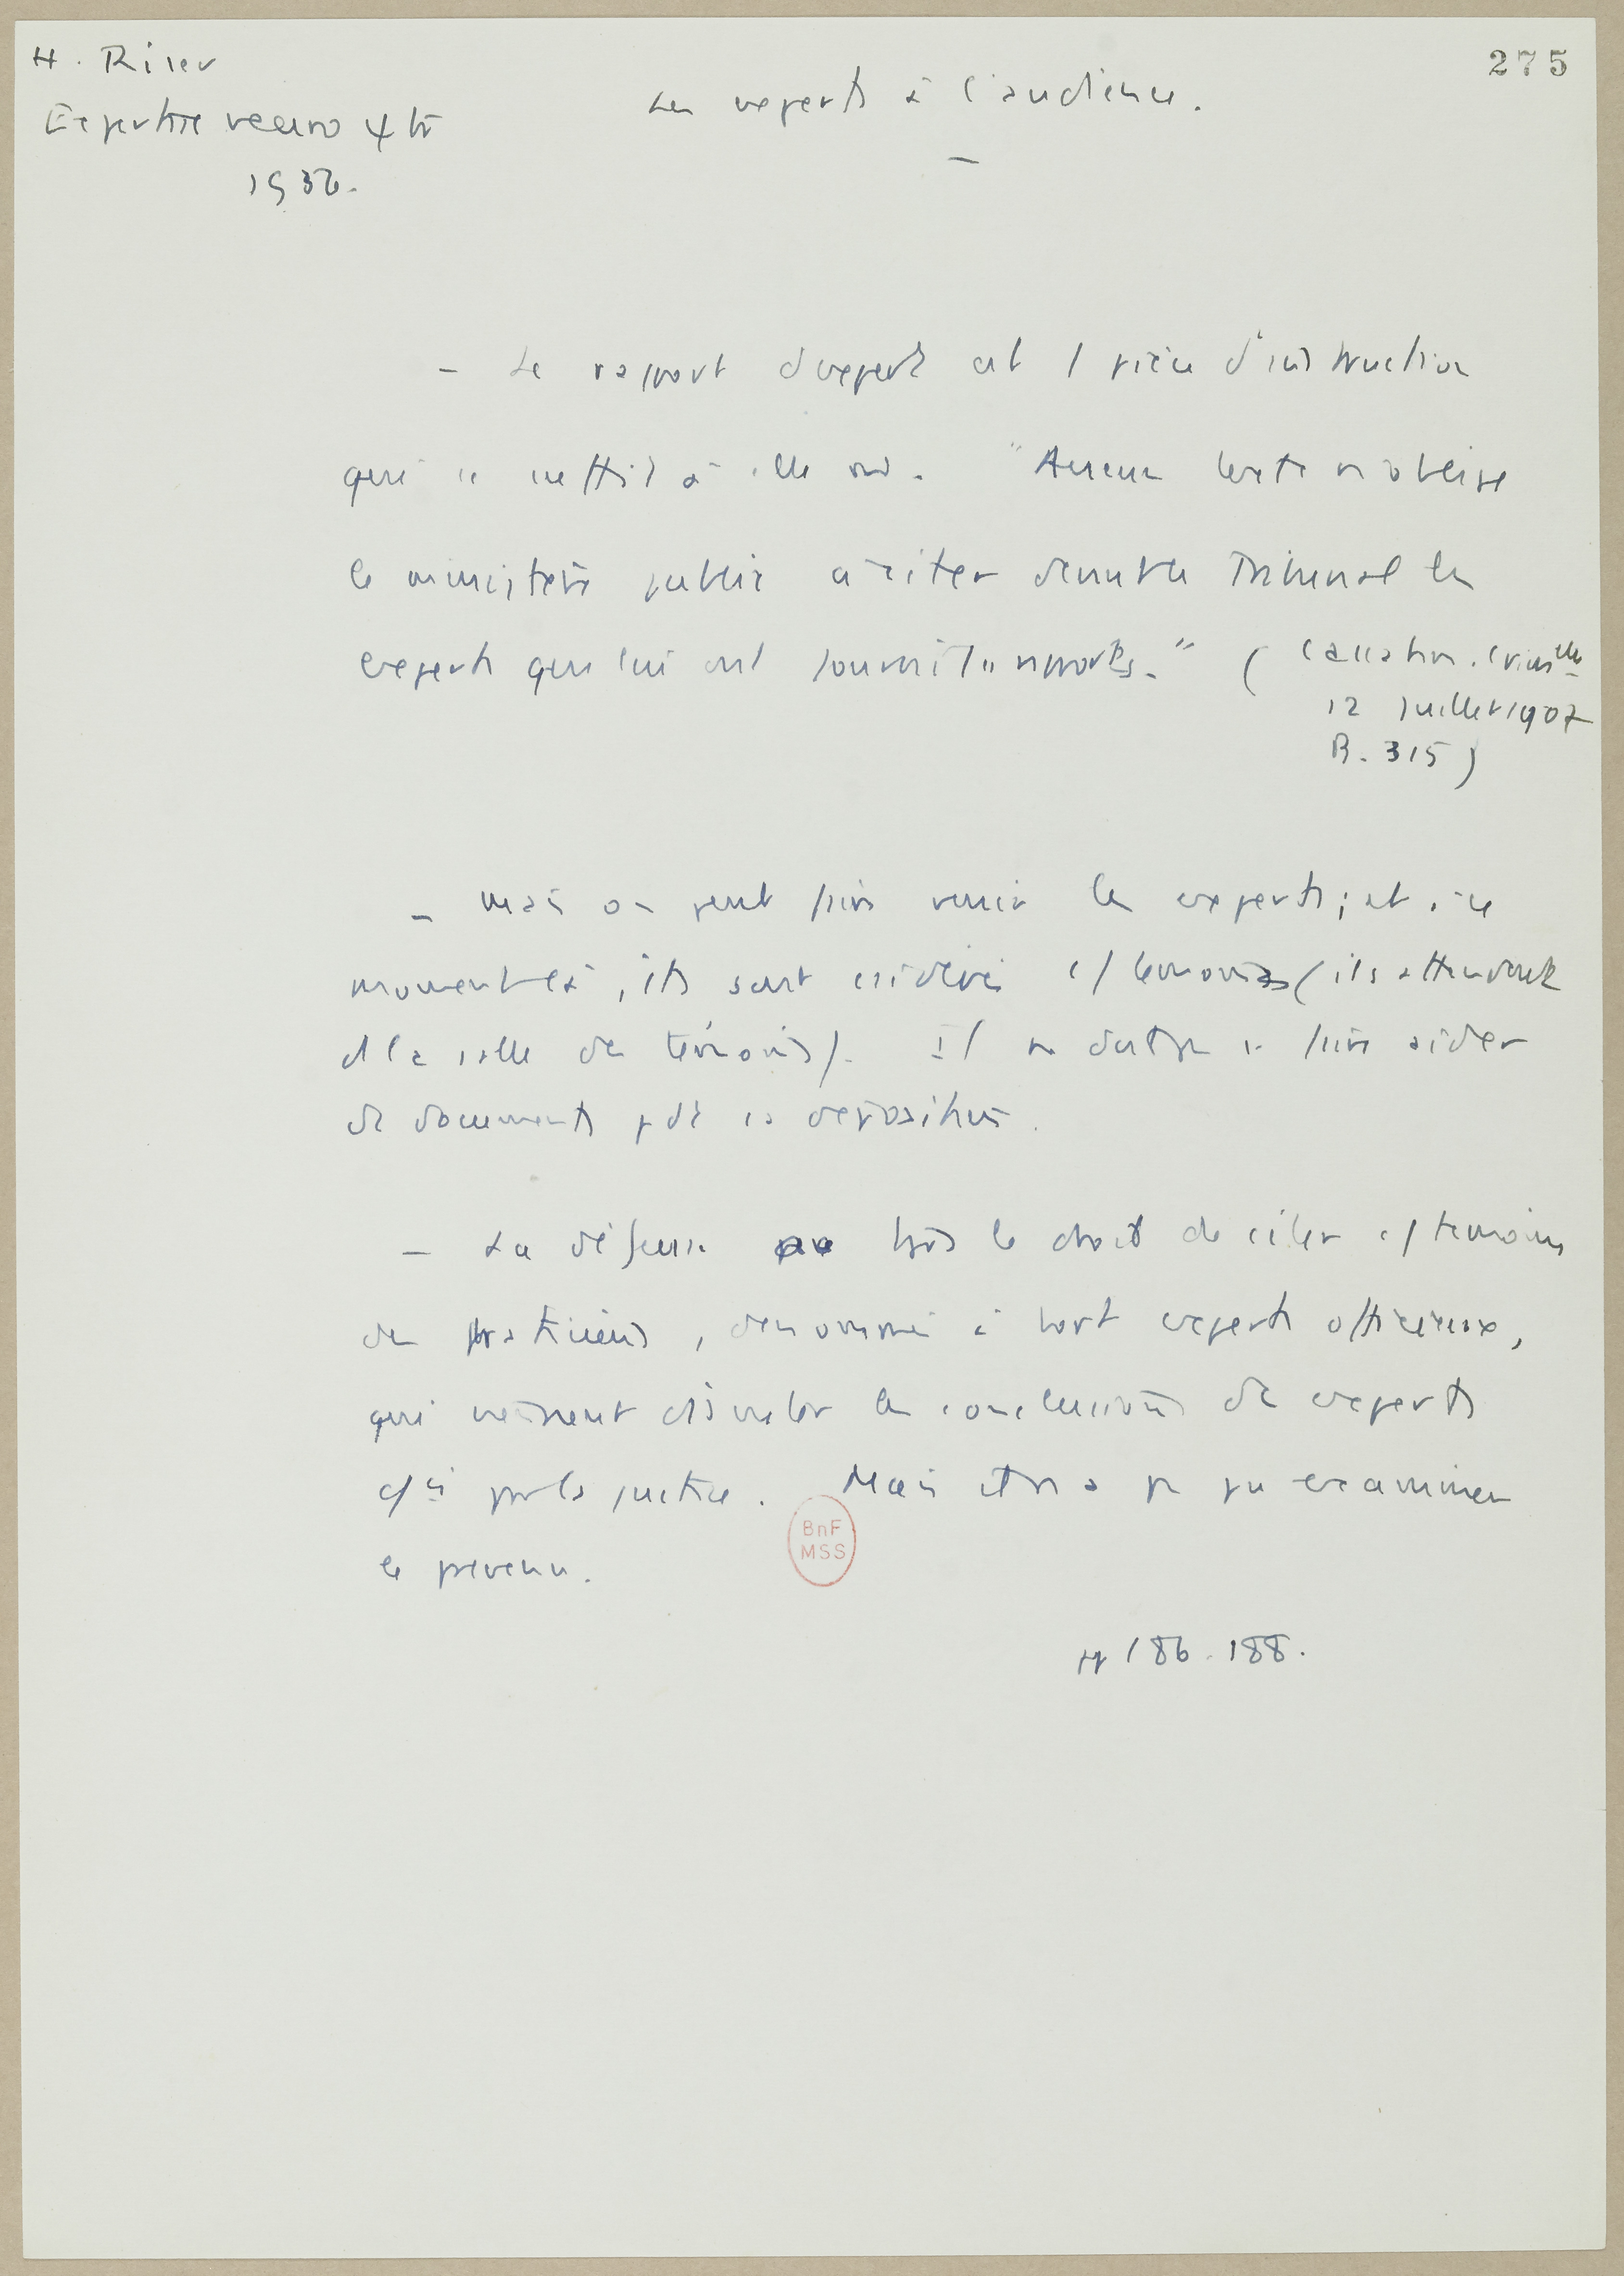 H. Riser
Expertise neuro ψ tr
1936.
275
Les experts à l'audience.
- Le rapport d'expert est 1 pièce d'instruction
qui se suffit à elle m̂. "Aucun texte n'oblige
le ministère public à citer devant le Tribunal les
experts qui lui ont fourni rapports." (Cassation. Crimlle
12 juillet 1907
B. 315)
- mais on peut faire venir les experts; et à ce
moment là, ils sont csidérés c/ témoins (ils attendent
ds la salle des témoins). Il ne doit pas se faire aider
de documents pdt sa déposition.
- La défense a tjrs le droit de citer c/ témoins
des praticiens, dénommés à tort experts officieux,
qui viennent discuter les conclusions des experts
par la justice. Mais ils n'a pas pu examiner
le prévenu.
pp 186-188.
BnF
MSS